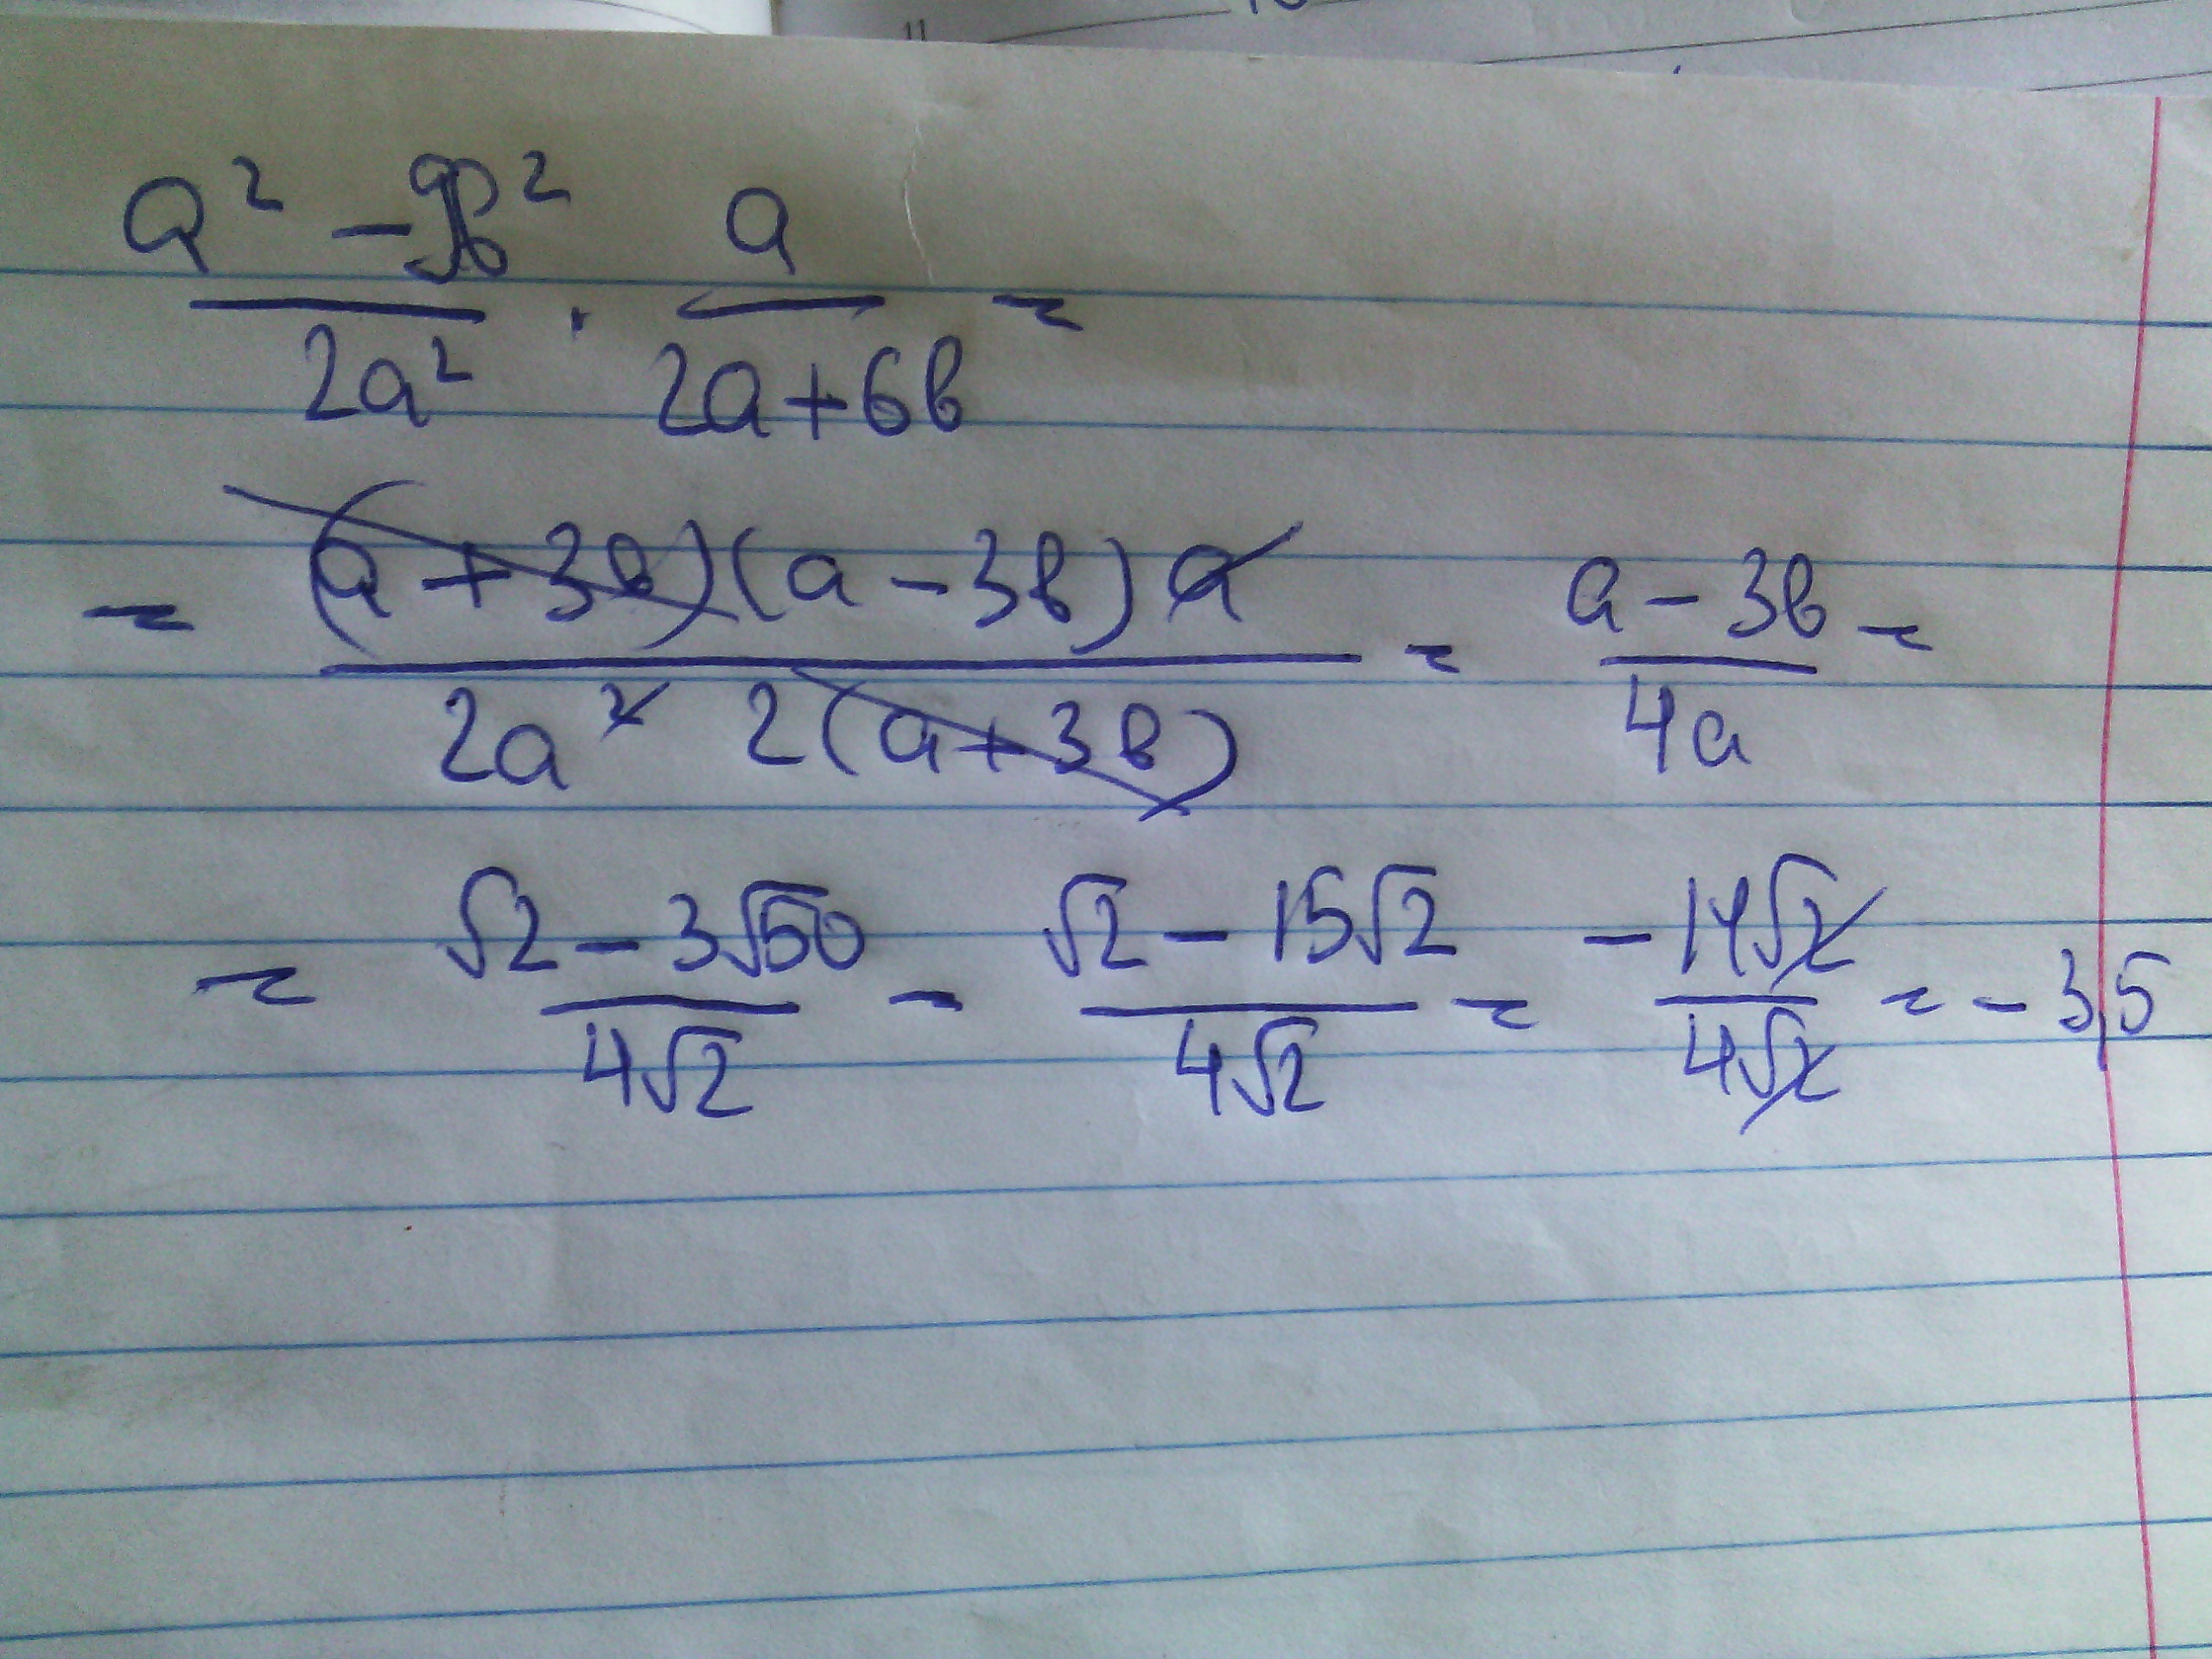 (a² - 9b²)/(2a²) · a/(2a+6b) =
= ((a+3b)(a-3b)a)/(2a² 2(a+3b)) = (a-3b)/(4a) =
= (√2 - 3√50)/(4√2) = (√2 - 15√2)/(4√2) = (-14√2)/(4√2) = -3,5